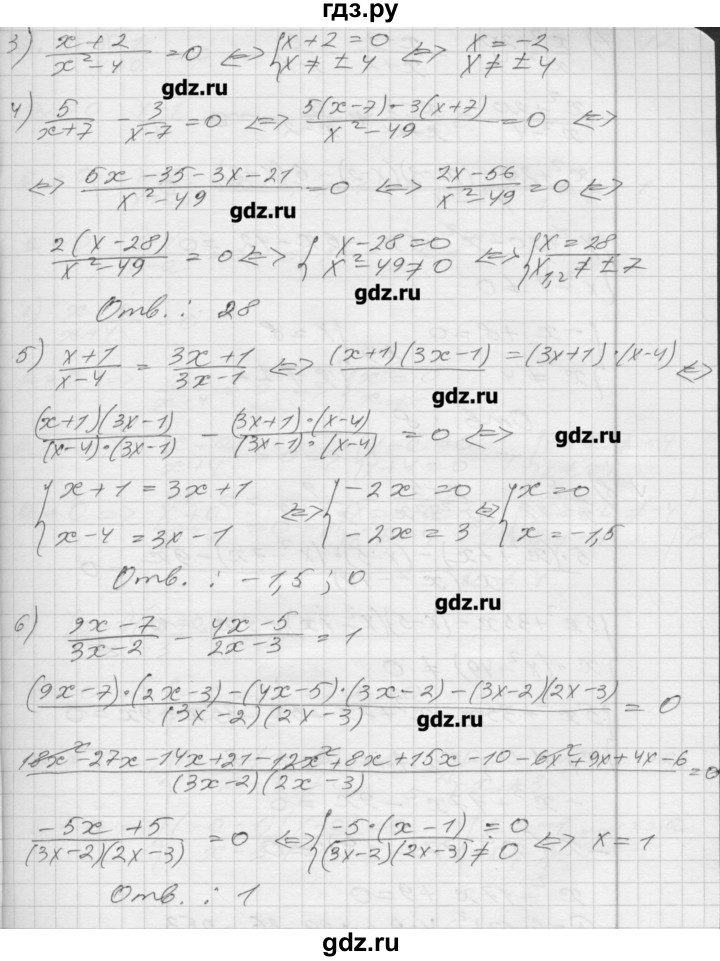 гдз.ру
3) (x+2)/(x²-4) = 0 <=> { x+2=0 <=> x=-2
x ≠ ±4 x ≠ ±4
gdz.ru
4) 5/(x+7) - 3/(x-7) = 0 <=> (5(x-7)-3(x+7))/(x²-49) = 0 <=>
<=> (5x-35-3x-21)/(x²-49) = 0 <=> (2x-56)/(x²-49) = 0 <=>
gdz.ru
2(x-28)/(x²-49) = 0 <=> { x-28=0 <=> { x=28
x²-49≠0 x₁,₂ ≠ ±7
gdz.ru
Отв.: 28
5) (x+1)/(x-4) = (3x+1)/(3x-1) <=> (x+1)(3x-1) = (3x+1)·(x-4) <=>
gdz.ru
(x+1)(3x-1)/((x-4)·(3x-1)) - (3x+1)·(x-4)/((3x-1)·(x-4)) = 0 <=>
gdz.ru
{ x+1=3x+1 <=> { -2x=0 <=> { x=0
x-4=3x-1 -2x=3 x=-1,5
Отв.: -1,5; 0
gdz.ru
6) (9x-7)/(3x-2) - (4x-5)/(2x-3) = 1
((9x-7)·(2x-3)-(4x-5)·(3x-2)-(3x-2)(2x-3))/((3x-2)(2x-3)) = 0
gdz.ru
(18x²-27x-14x+21-12x²+8x+15x-10-6x²+9x+4x-6)/((3x-2)(2x-3)) = 0
(-5x+5)/((3x-2)(2x-3)) = 0 <=> { -5·(x-1)=0 <=> x=1
(3x-2)(2x-3)≠0
Отв.: 1
gdz.ru